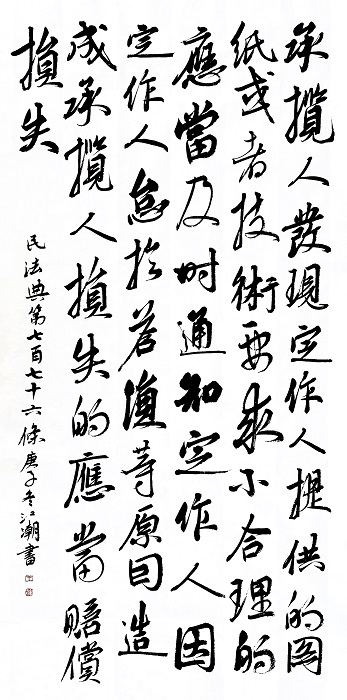 承攬人發現定作人提供的圖
紙或者技術要求不合理的
應當及時通知定作人因
定作人怠於答復等原因造
成承攬人損失的應當賠償
損失
民法典第七百七十六條庚子冬江潮書